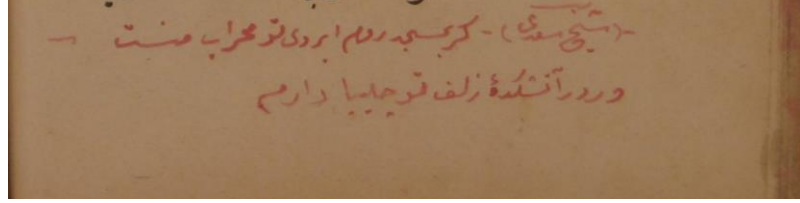 -(شیخ سعدی)- گر بمسجد روم ابروی تو محراب منست -
ور در آتشکدهٔ زلف تو چلیپا دارم